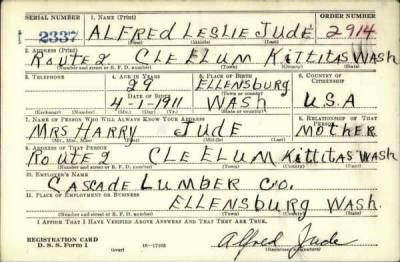 SERIAL NUMBER 1. NAME (Print) ORDER NUMBER
2337 ALFRED LESLIE JUDE 2914
(First) (Middle) (Last)
2. ADDRESS (Print)
ROUTE 2 CLE ELUM KITTITAS WASH
(Number and street or R. F. D. number) (Town) (County) (State)
3. TELEPHONE 4. AGE IN YEARS 5. PLACE OF BIRTH 6. COUNTRY OF CITIZENSHIP
ELLENSBURG
DATE OF BIRTH (Town or county)
4-1-1911 WASH U.S.A
(Exchange) (Number) (Mo.) (Day) (Yr.) (State or country)
7. NAME OF PERSON WHO WILL ALWAYS KNOW YOUR ADDRESS 8. RELATIONSHIP OF THAT PERSON
MRS HARRY JUDE MOTHER
(Mr., Mrs., Miss) (First) (Middle) (Last)
9. ADDRESS OF THAT PERSON
ROUTE 2 CLE ELUM KITTITAS WASH
(Number and street or R. F. D. number) (Town) (County) (State)
10. EMPLOYER'S NAME
CASCADE LUMBER CO.
11. PLACE OF EMPLOYMENT OR BUSINESS
ELLENSBURG WASH.
(Number and street or R. F. D. number) (Town) (County) (State)
I AFFIRM THAT I HAVE VERIFIED ABOVE ANSWERS AND THAT THEY ARE TRUE.
REGISTRATION CARD
D. S. S. Form 1 (over) 16-17105 Alfred Jude